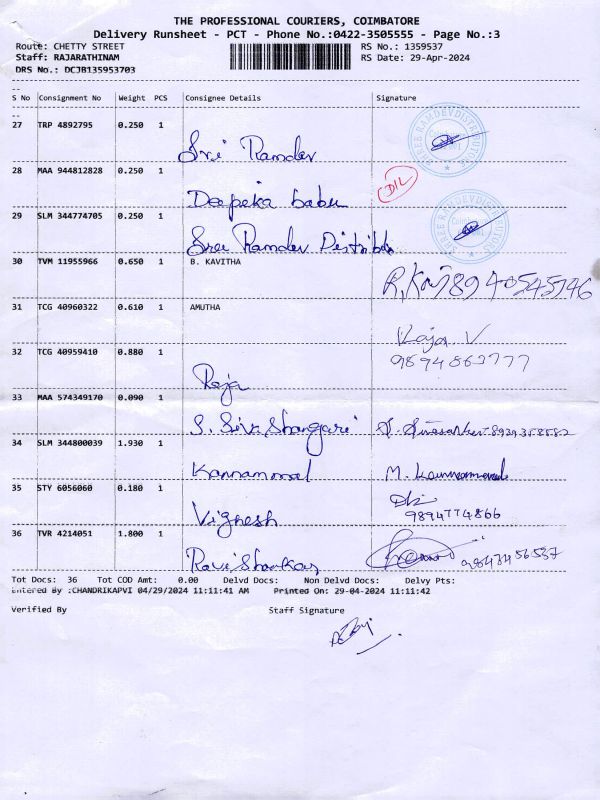 THE PROFESSIONAL COURIERS, COIMBATORE
Delivery Runsheet - PCT - Phone No.:0422-3505555 - Page No.:3
Route: CHETTY STREET RS No.: 1359537
Staff: RAJARATHINAM RS Date: 29-Apr-2024
DRS No.: DCJB135953703
S No Consignment No Weight PCS Consignee Details Signature
27 TRP 4892795 0.250 1 Sri Ramdev
28 MAA 944812828 0.250 1 Deepeka babu DIL
29 SLM 344774705 0.250 1 Sree Ramdev
30 TVM 11955966 0.650 1 B. KAVITHA
31 TCG 40960322 0.610 1 AMUTHA Raja V
32 TCG 40959410 0.880 1 Raja 9894863777
33 MAA 574349170 0.090 1 S. Siva Shangari
34 SLM 344800039 1.930 1 Kannammal M.
35 STY 6056060 0.180 1 Vignesh 9894774866
36 TVR 4214051 1.800 1 Ravi Shankar
Tot Docs: 36 Tot COD Amt: 0.00 Delvd Docs: Non Delvd Docs: Delvy Pts:
Entered By :CHANDRIKAPVI 04/29/2024 11:11:41 AM Printed On: 29-04-2024 11:11:42
Verified By Staff Signature